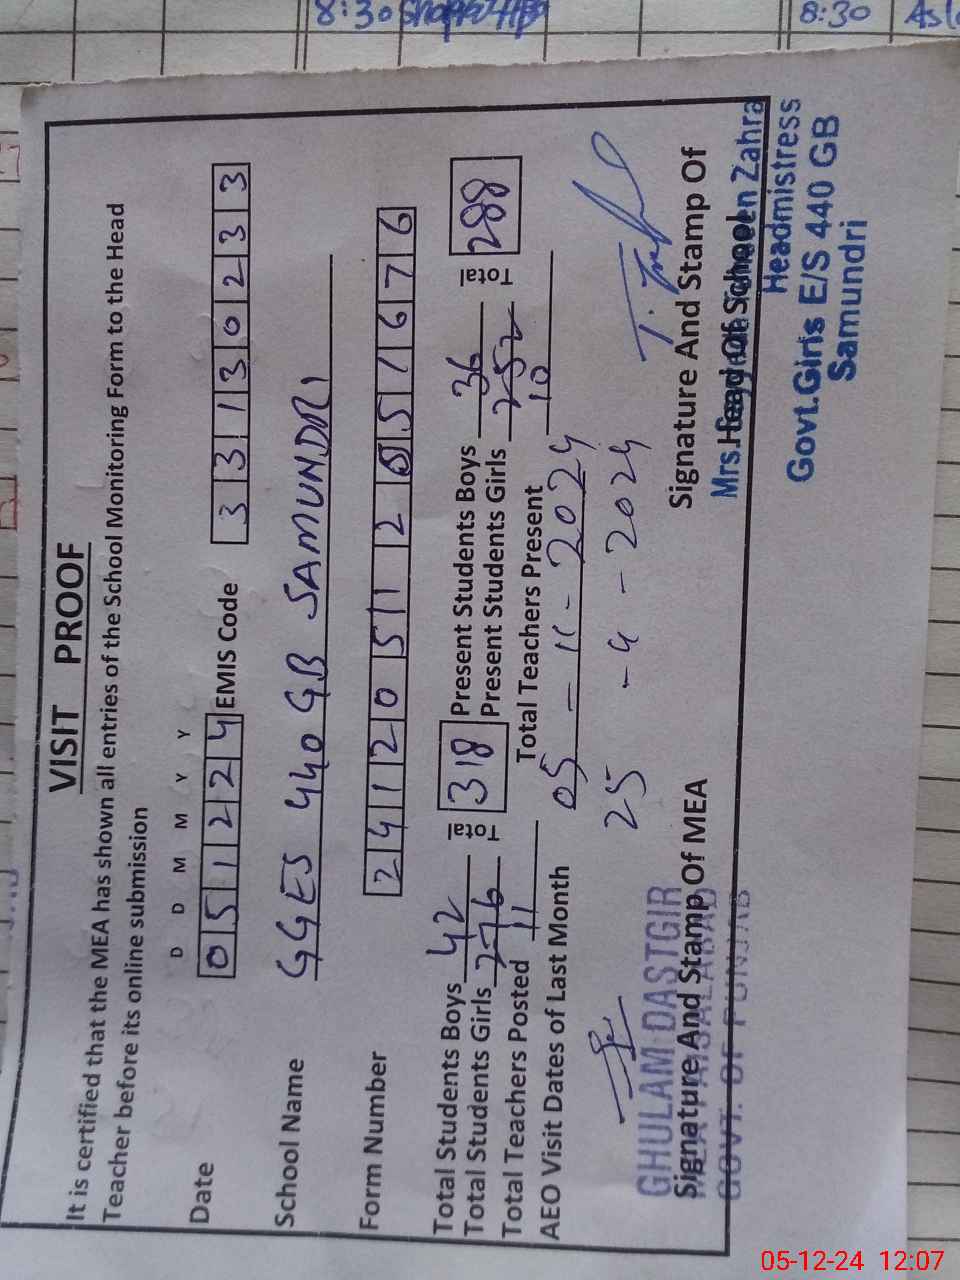 8:30
8:30
VISIT PROOF
It is certified that the MEA has shown all entries of the School Monitoring Form to the Head
Teacher before its online submission
D D M M Y Y
Date 051224 EMIS Code 33130233
School Name GGES 440 GB SAMUNDRI
Form Number 2412051120517676
Total Students Boys 42 Total 318 Present Students Boys 36 Total 288
Total Students Girls 276 Present Students Girls 252
Total Teachers Posted 11 Total Teachers Present 10
AEO Visit Dates of Last Month 05-11-2024
25-11-2024
GHULAM DASTGIR
Signature And Stamp Of MEA
MEA FAISALABAD
GOVT. OF PUNJAB
Signature And Stamp Of
Head Of School
Mrs. Zahra
Headmistress
Govt.Girls E/S 440 GB
Samundri
05-12-24 12:07